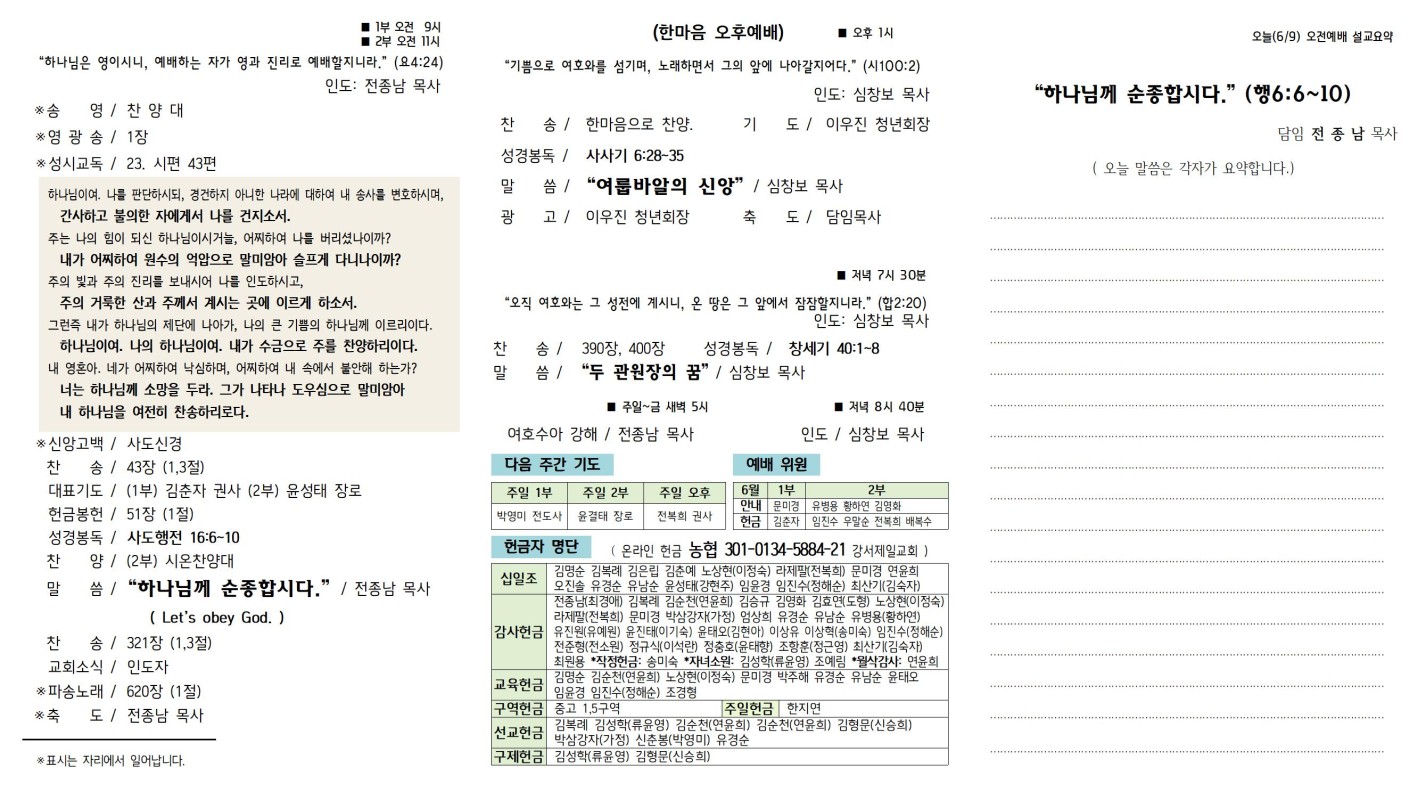 ■ 1부 오전 9시
■ 2부 오전 11시
“하나님은 영이시니, 예배하는 자가 영과 진리로 예배할지니라.” (요4:24)
인도: 전종남 목사
※송 영 / 찬 양 대
※영 광 송 / 1장
※성시교독 / 23. 시편 43편
하나님이여. 나를 판단하시되, 경건하지 아니한 나라에 대하여 내 송사를 변호하시며,
간사하고 불의한 자에게서 나를 건지소서.
주는 나의 힘이 되신 하나님이시거늘, 어찌하여 나를 버리셨나이까?
내가 어찌하여 원수의 억압으로 말미암아 슬프게 다니나이까?
주의 빛과 주의 진리를 보내시어 나를 인도하시고,
주의 거룩한 산과 주께서 계시는 곳에 이르게 하소서.
그런즉 내가 하나님의 제단에 나아가, 나의 큰 기쁨의 하나님께 이르리이다.
하나님이여. 나의 하나님이여. 내가 수금으로 주를 찬양하리이다.
내 영혼아. 네가 어찌하여 낙심하며, 어찌하여 내 속에서 불안해 하는가?
너는 하나님께 소망을 두라. 그가 나타나 도우심으로 말미암아
내 하나님을 여전히 찬송하리로다.
※신앙고백 / 사도신경
찬 송 / 43장 (1,3절)
대표기도 / (1부) 김춘자 권사 (2부) 윤성태 장로
헌금봉헌 / 51장 (1절)
성경봉독 / 사도행전 16:6~10
찬 양 / (2부) 시온찬양대
말 씀 / “하나님께 순종합시다.” / 전종남 목사
( Let's obey God. )
찬 송 / 321장 (1,3절)
교회소식 / 인도자
※파송노래 / 620장 (1절)
※축 도 / 전종남 목사
※표시는 자리에서 일어납니다.
(한마음 오후예배) ■ 오후 1시
“기쁨으로 여호와를 섬기며, 노래하면서 그의 앞에 나아갈지어다.” (시100:2)
인도: 심창보 목사
찬 송 / 한마음으로 찬양. 기 도 / 이우진 청년회장
성경봉독 / 사사기 6:28~35
말 씀 / “여룹바알의 신앙” / 심창보 목사
광 고 / 이우진 청년회장 축 도 / 담임목사
■ 저녁 7시 30분
“오직 여호와는 그 성전에 계시니, 온 땅은 그 앞에서 잠잠할지니라.” (합2:20)
인도: 심창보 목사
찬 송 / 390장, 400장 성경봉독 / 창세기 40:1~8
말 씀 / “두 관원장의 꿈” / 심창보 목사
■ 주일~금 새벽 5시 ■ 저녁 8시 40분
여호수아 강해 / 전종남 목사 인도 / 심창보 목사
다음 주간 기도 예배 위원
주일 1부 주일 2부 주일 오후
박영미 전도사 윤결태 장로 전복희 권사
6월 1부 2부
안내 문미경 유병용 황하연 김영화
헌금 김춘자 임진수 우말순 전복희 배복수
헌금자 명단 ( 온라인 헌금 농협 301-0134-5884-21 강서제일교회 )
십일조 김명순 김복례 김은립 김춘예 노상현(이정숙) 라제팔(전복희) 문미경 연윤희
오진솔 유경순 유남순 윤성태(강현주) 임윤경 임진수(정해순) 최산기(김숙자)
감사헌금 전종남(최경애) 김복례 김순천(연윤희) 김승규 김영화 김효연(도형) 노상현(이정숙)
라제팔(전복희) 문미경 박삼강자(가정) 엄상희 유경순 유남순 유병용(황하연)
유진원(유예원) 윤진태(이기숙) 윤태오(김현아) 이상유 이상혁(송미숙) 임진수(정해순)
전준형(전소원) 정규식(이석란) 정충호(윤태향) 조항훈(정근영) 최산기(김숙자)
최원용 *작정헌금: 송미숙 *자녀소원: 김성학(류윤영) 조예림 *월삭감사: 연윤희
교육헌금 김명순 김순천(연윤희) 노상현(이정숙) 문미경 박주해 유경순 유남순 윤태오
임윤경 임진수(정해순) 조경형
구역헌금 중고 1,5구역 주일헌금 한지연
선교헌금 김복례 김성학(류윤영) 김순천(연윤희) 김순천(연윤희) 김형문(신승희)
박삼강자(가정) 신춘봉(박영미) 유경순
구제헌금 김성학(류윤영) 김형문(신승희)
오늘(6/9) 오전예배 설교요약
“하나님께 순종합시다.” (행6:6~10)
담임 전 종 남 목사
( 오늘 말씀은 각자가 요약합니다.)